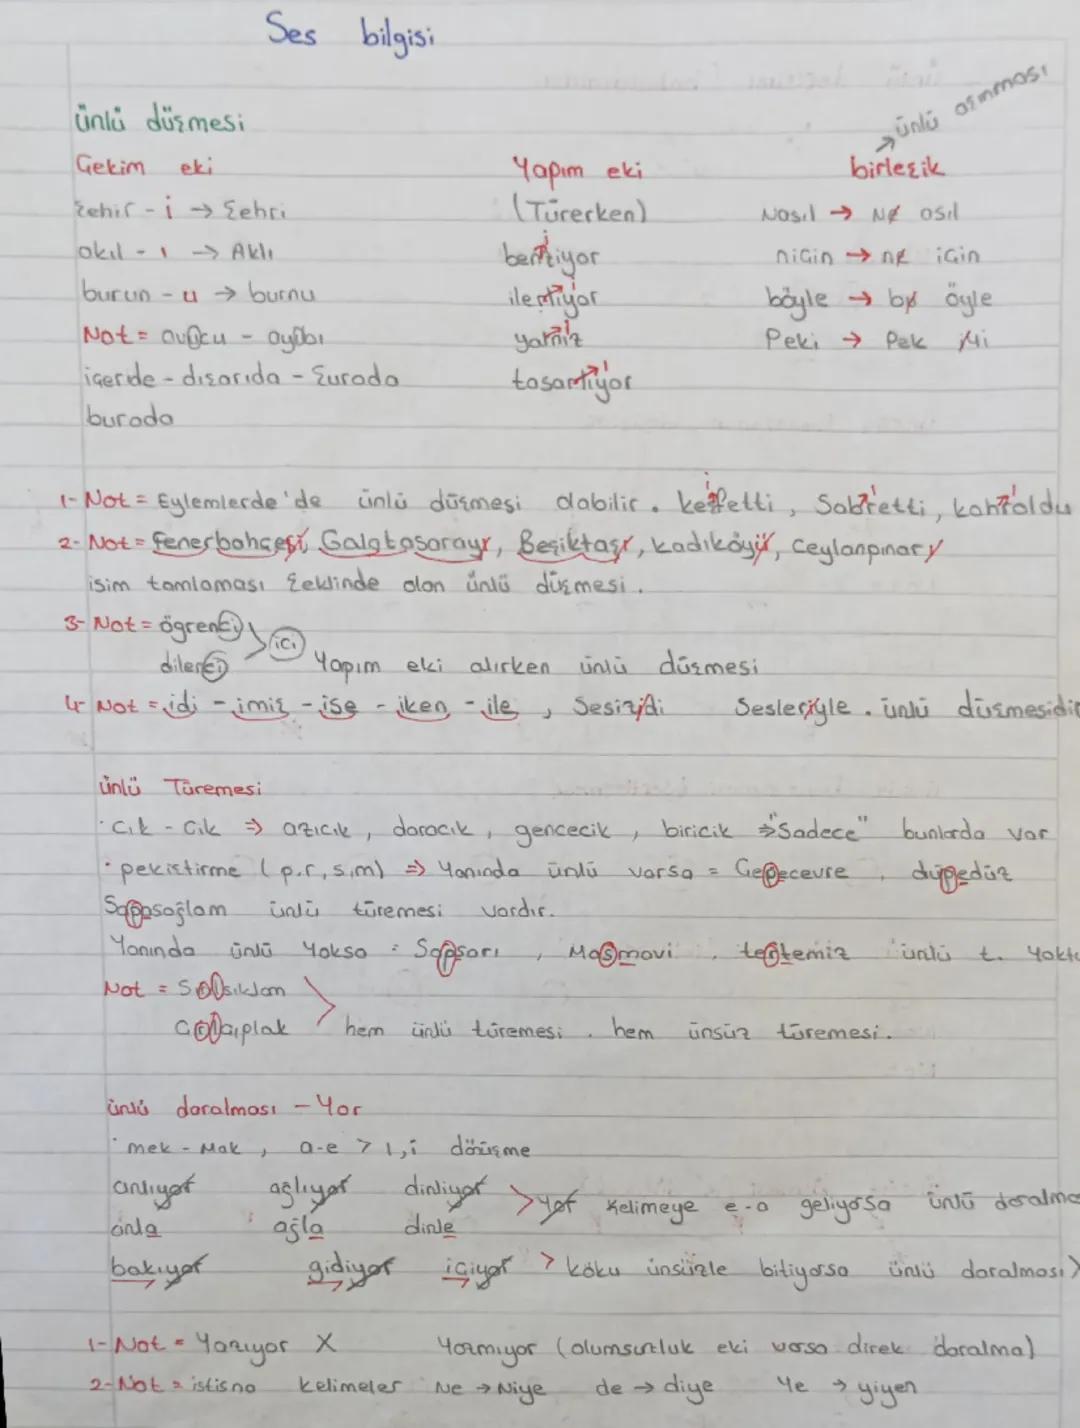 Ses bilgisi
ünlü düşmesi
→ünlü aşınması
Çekim eki Yapım eki birleşik
Şehir - i → Şehri (Türerken) Nasıl → Ne asıl
akıl - ı → Aklı benziyor niçin → ne için
burun - u → burnu ilerliyor böyle → bu öyle
Not = avucu - ayıbı yalnız Peki → Pek iyi
içerde - dışarıda - Şurada tasarlıyor
burada
1- Not = Eylemlerde'de ünlü düşmesi olabilir. keşfetti, Sabretti, kahroldu
2- Not = Fenerbahçesi, Galatasarayı, Beşiktaşı, Kadıköyü, Ceylanpınarı
isim tamlaması Şeklinde olan ünlü düşmesi.
3- Not = öğrenci
dilenci > ici Yapım eki alırken ünlü düşmesi
4- Not = idi - imiş - ise - iken - ile, Sesizidi Sesleriyle. ünlü düşmesidir
ünlü Türemesi
· Cık - Cik ⇒ azıcık, daracık, gencecik, biricik ⇒ "Sadece" bunlarda var
· pekiştirme (p.r,s,m) ⇒ Yanında ünlü varsa = Çepeçevre, düpedüz
Sapasağlam ünlü türemesi vardır.
Yanında ünlü Yoksa : Sapsarı, Masmavi, tertemiz ünlü t. Yoktu
Not = Sırılsıklam
Çırılçıplak > hem ünlü türemesi. hem ünsüz türemesi.
ünlü daralması - Yor
· mek - Mak, a-e > ı,i dönüşme
anlıyor ağlıyor dinliyor > yor kelimeye e-a geliyorsa ünlü daralma
anla ağla dinle
bakıyor gidiyor içiyor > kökü ünsüzle bitiyorsa ünlü daralması X
1- Not = Yazıyor X Yazmıyor (olumsuzluk eki varsa direk daralma)
2- Not = istisna kelimeler Ne → Niye de → diye Ye → yiyen